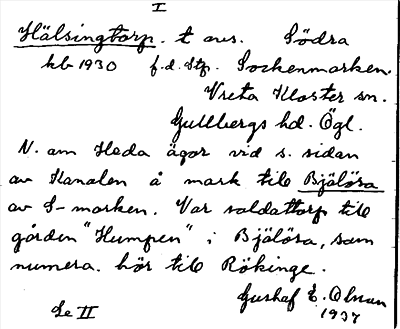 I
Hälsingtorp. t avs. Södra
kb 1930 f.d. Stp. Sockenmarken.
Vreta Kloster sn.
Gullbergs hd. Ögl.
N. om Heda ägor vid s. sidan
av Kanalen å mark till Bjälösa
av S-marken. Var soldattorp till
gården "Humpen" i Bjälösa, som
numera. hör till Rökinge.
Se II Gustaf E. Olsson
1937